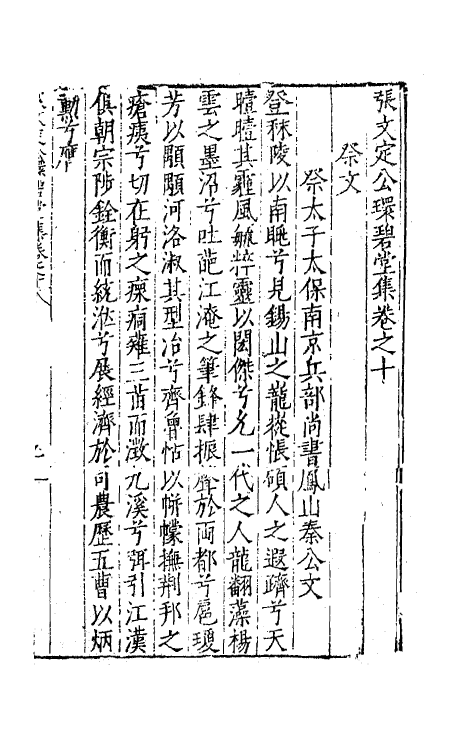 張文定公環碧堂集卷之十
祭文
祭太子太保南京兵部尚書鳳山秦公文
登秣陵以南眺兮見錫山之巃嵸悵碩人之遐躋兮天
曀曀其霾風毓粹靈以閎傑兮允一代之人龍翻藻楊
雲之墨沼兮吐葩江淹之筆鋒肆振於兩都兮扈瓊
芳以顒顒河洛淑其型冶兮齊魯怙以帡幪撫荆邦之
瘡痍兮切在躬之瘝痌雍三苗而澂九溪兮弭引江漢
俱朝宗陟銓衡而統淮兮展經濟於司農歷五曹以炳
勳兮雍